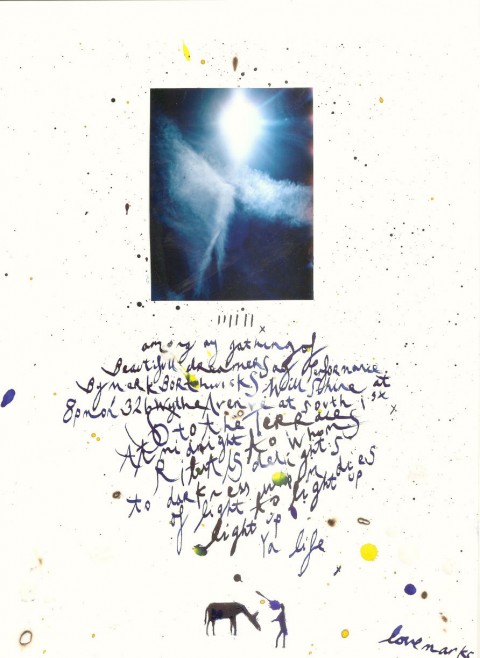 among my gathering of
Beautiful dreamers a Performance
By Mark Borthwick Will Shine at
8pm on 326 Wythe Avenue at south 1 st
to the TERRACES
At midnight to whom
delights
to darkness
of light to light up
light up
Ya life
love marks